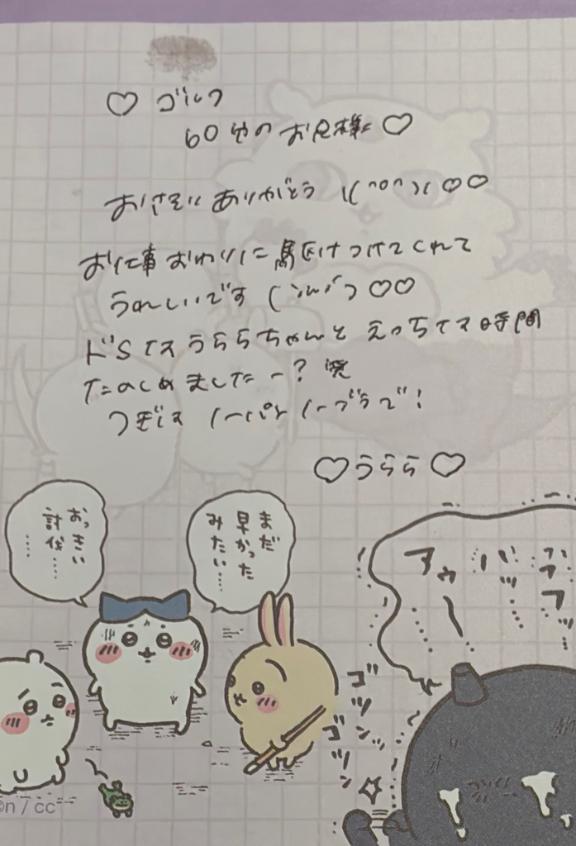 ♡ ゴルフ
60分のお兄様 ♡
おさそい ありがとう \(^o^)/ ♡♡
お仕事おわりに 駆けつけてくれて
うれしいです ♡♡
ドSな うららちゃんと えっちな 時間
たのしめましたー? 笑
つぎは ノーパン ノーブラで!
♡うらら♡
まだ
早かった
みたい…
おっきい
討伐……
……